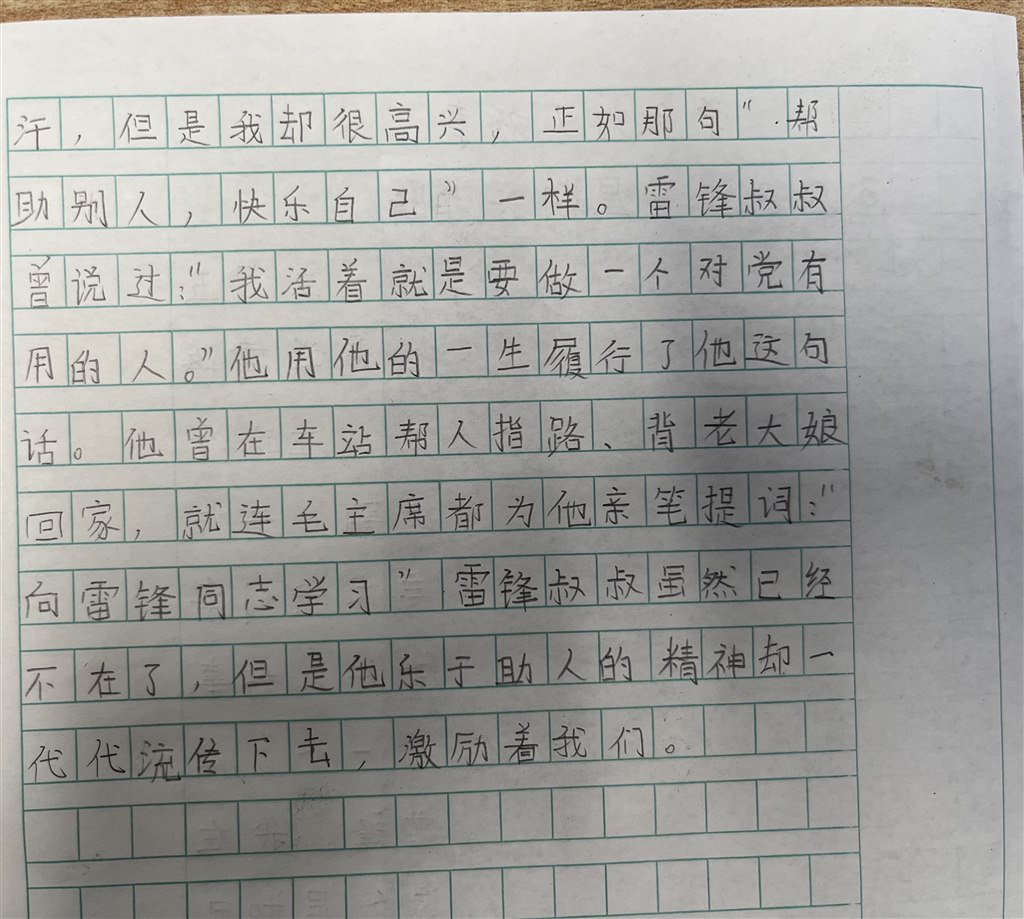 汗，但是我却很高兴，正如那句“帮
助别人，快乐自己”一样。雷锋叔叔
曾说过：“我活着就是要做一个对党有
用的人。”他用他的一生履行了他这句
话。他曾在车站帮人指路、背老大娘
回家，就连毛主席都为他亲笔提词：“
向雷锋同志学习”雷锋叔叔虽然已经
不在了，但是他乐于助人的精神却一
代代流传下去，激励着我们。